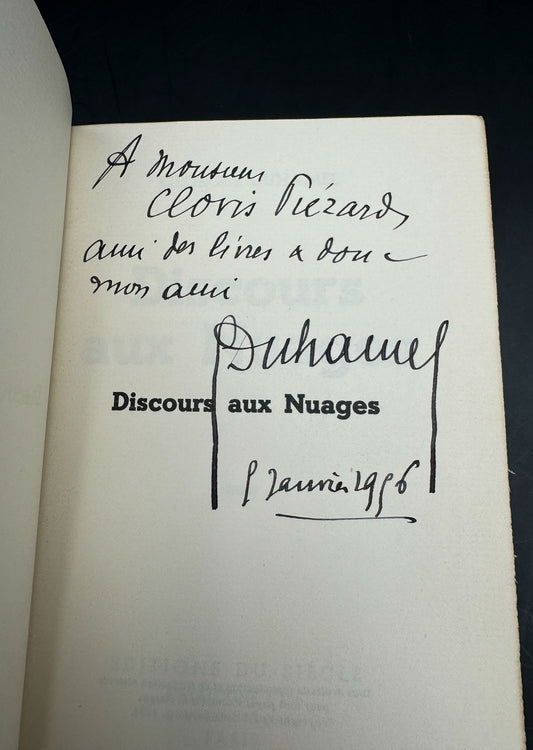 A monsieur
Clovis Piérard,
ami des livres & donc
mon ami
Duhamel
Discours aux Nuages
5 Janvier 1956
EDITIONS DU SIECLE